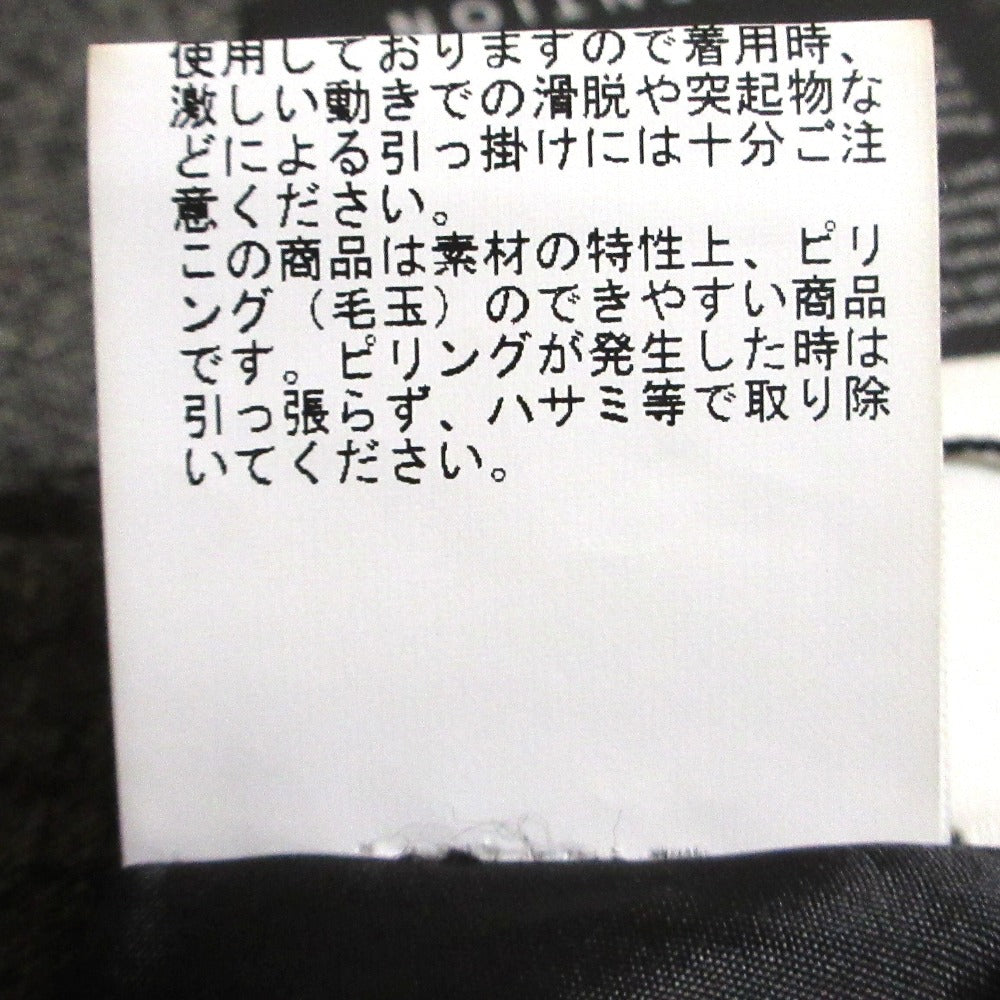 使用しておりますので着用時、
激しい動きでの滑脱や突起物な
どによる引っ掛けには十分ご注
意ください。
この商品は素材の特性上、ピリ
ング（毛玉）のできやすい商品
です。ピリングが発生した時は
引っ張らず、ハサミ等で取り除
いてください。